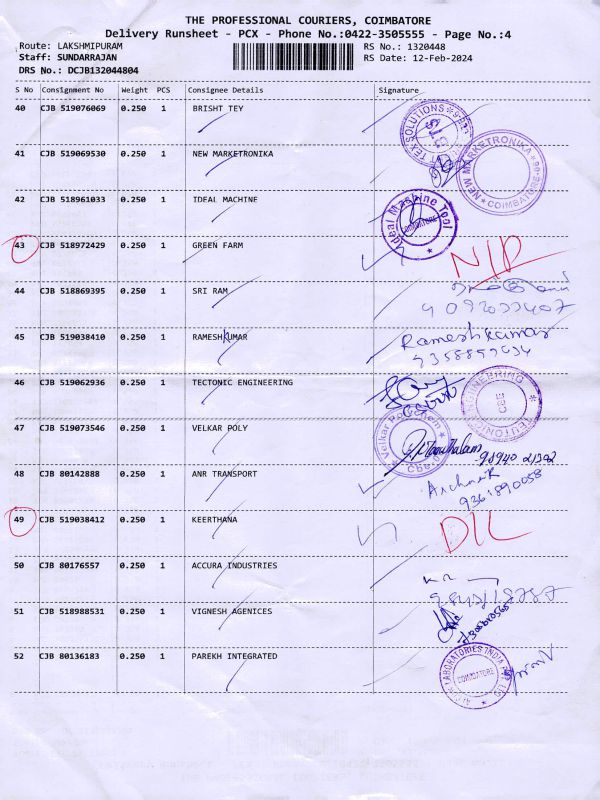 THE PROFESSIONAL COURIERS, COIMBATORE
Delivery Runsheet - PCX - Phone No.:0422-3505555 - Page No.:4
Route: LAKSHMIPURAM RS No.: 1320448
Staff: SUNDARRAJAN RS Date: 12-Feb-2024
DRS No.: DCJB132044804
S No Consignment No Weight PCS Consignee Details Signature
40 CJB 519076069 0.250 1 BRISHT TEY
41 CJB 519069530 0.250 1 NEW MARKETRONIKA
NEW MARKETRONIKA COIMBATORE
42 CJB 518961033 0.250 1 IDEAL MACHINE
Ideal Machine Tool COIMBATORE
43 CJB 518972429 0.250 1 GREEN FARM
44 CJB 518869395 0.250 1 SRI RAM
45 CJB 519038410 0.250 1 RAMESHKUMAR Rameshkumar
46 CJB 519062936 0.250 1 TECTONIC ENGINEERING
47 CJB 519073546 0.250 1 VELKAR POLY
48 CJB 80142888 0.250 1 ANR TRANSPORT
49 CJB 519038412 0.250 1 KEERTHANA DIL
50 CJB 80176557 0.250 1 ACCURA INDUSTRIES
51 CJB 518988531 0.250 1 VIGNESH AGENICES
52 CJB 80136183 0.250 1 PAREKH INTEGRATED
LABORATORIES INDIA PVT LTD COIMBATORE